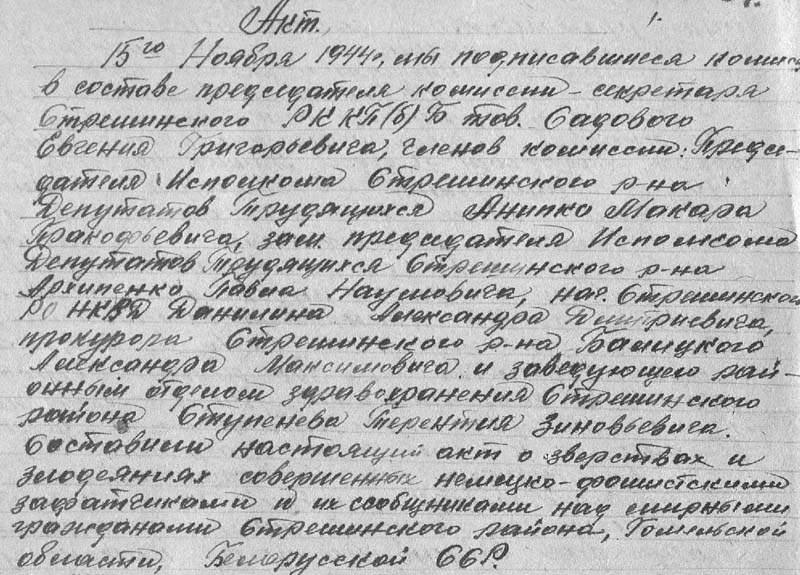 Акт. 1.
15го Ноября 1944г, мы подписавшиеся комисс
в составе председателя комиссии – секретаря
Стрешинского РККП(б)Б тов. Садового
Евгения Григорьевича, членов комиссии: Предсе-
дателя Исполкома Стрешинского р-на
Депутатов Трудящихся Анипко Макара
Пракофьевича, зам. председателя Исполкома
Депутатов Трудящихся Стрешинского р-на
Архипенко Павла Наумовича, нач. Стрешинского
РО НКВД Данилина Александра Дмитриевича,
прокурора Стрешинского р-на Балицкого
Александра Максимовича и заведующего рай-
онным отделом здравохранения Стрешинского
района Ступенева Терентия Зиновьевича.
Составили настоящий акт о зверствах и
злодеяниях совершенных немецко-фашистскими
захватчиками и их сообщниками над мирными
гражданами Стрешинского района, Гомельской
области, Белорусской ССР.